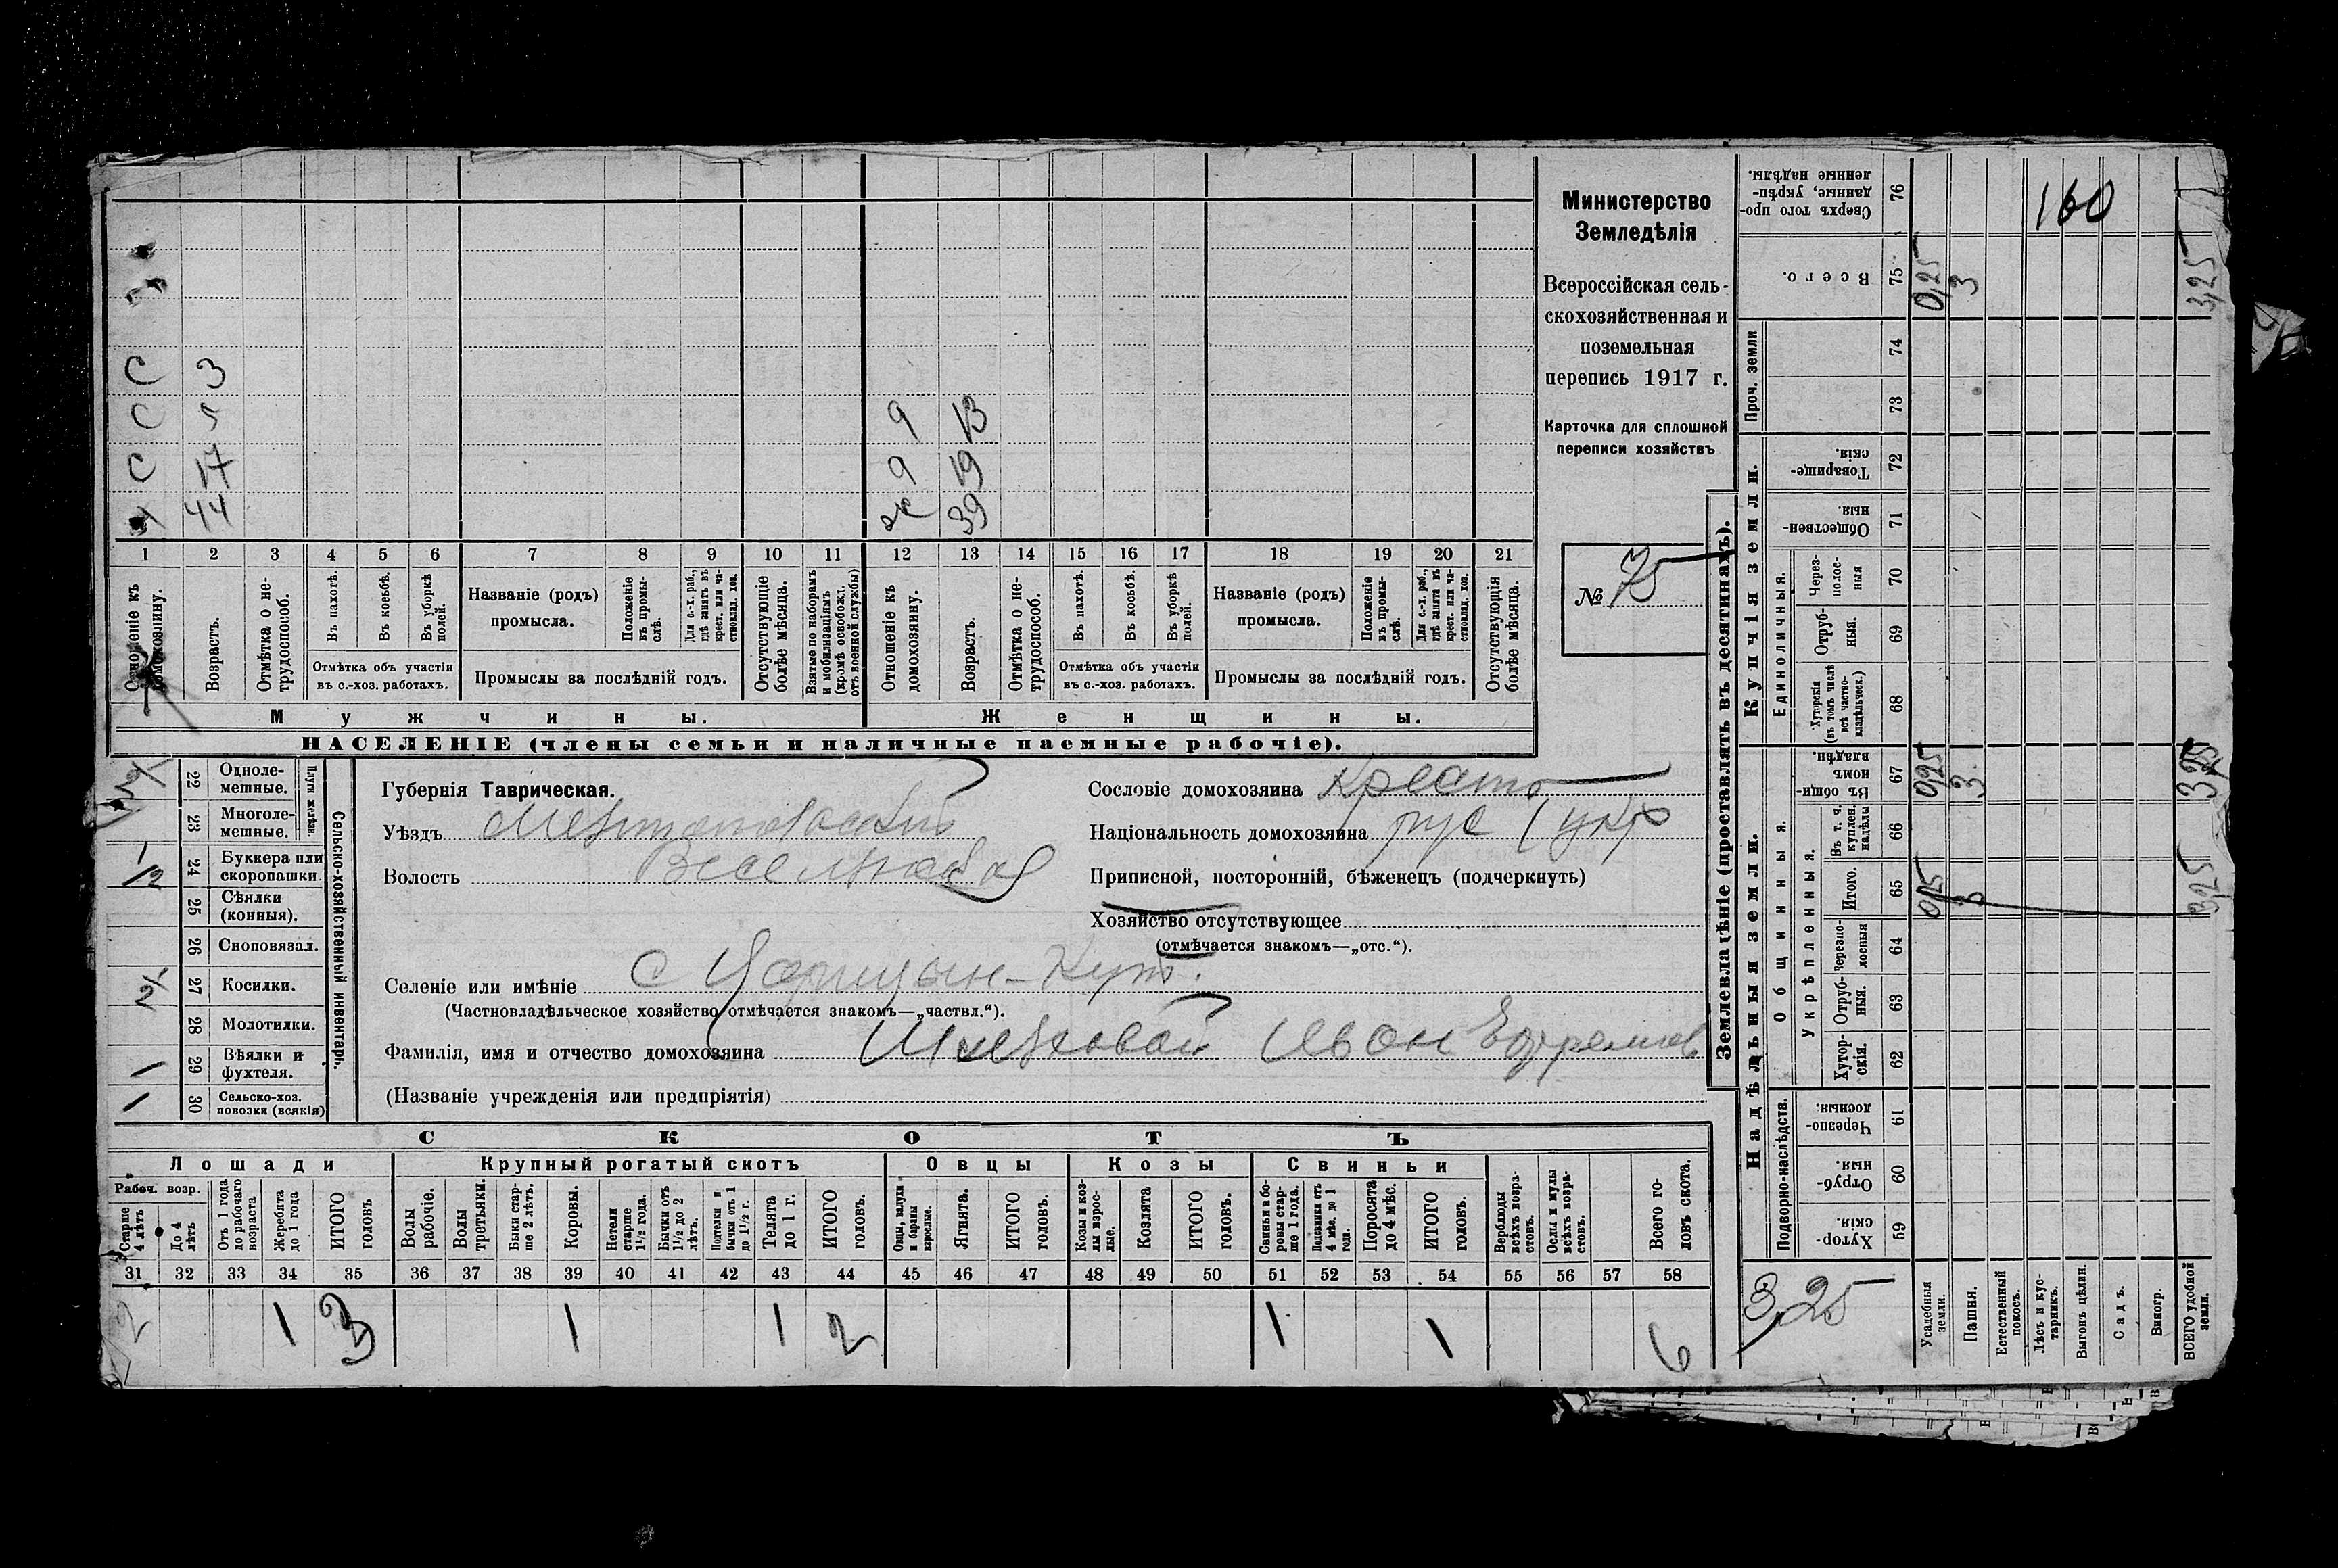 Министерство
Земледѣлія
Всероссійская сель-
скохозяйственная и
поземельная
перепись 1917 г.
Карточка для сплошной
переписи хозяйствъ
№ 75
С 3
С 5 9 13
С 17 9 19
44 ж 39
1 2 3 4 5 6 7 8 9 10 11 12 13 14 15 16 17 18 19 20 21
Отношеніе къ домохозяину.
Возрастъ.
Отмѣтка о не-трудоспособ.
Въ пахотѣ.
Въ косьбѣ.
Въ уборкѣ полей.
Отмѣтка объ участіи
въ с.-хоз. работахъ.
Названіе (родъ)
промысла.
Положеніе въ промы-слѣ.
Для с.-х. раб., гдѣ занятъ въ крест. или ча-стновлад. хоз.
Промыслы за послѣдній годъ.
Отсутствующіе болѣе мѣсяца.
Взятые по наборамъ и мобилизаціямъ (кромѣ освобожд. отъ военной службы)
Отношеніе къ домохозяину.
Возрастъ.
Отмѣтка о не-трудоспособ.
Въ пахотѣ.
Въ косьбѣ.
Въ уборкѣ полей.
Отмѣтка объ участіи
въ с.-хоз. работахъ.
Названіе (родъ)
промысла.
Положеніе въ промы-слѣ.
Для с.-х. раб., гдѣ занята въ крест. или ча-стновлад. хоз.
Промыслы за послѣдній годъ.
Отсутствующія болѣе мѣсяца.
Мужчины.
Женщины.
НАСЕЛЕНІЕ (члены семьи и наличные наемные рабочіе).
Сельско-хозяйственный инвентарь.
Плуги желѣзн.
22 Одноле-мешные.
23 Многоле-мешные.
1/2 24 Буккера или скоропашки.
25 Сѣялки (конныя).
26 Сноповязал.
27 Косилки.
28 Молотилки.
1 29 Вѣялки и фухтеля.
1 30 Сельско-хоз. повозки (всякія)
Губернія Таврическая.
Уѣздъ Мелитопольский
Волость Веселовская
Сословіе домохозяина Крестъ
Національность домохозяина рус (укр
Приписной, посторонній, бѣженецъ (подчеркнуть)
Хозяйство отсутствующее
(отмѣчается знакомъ—„отс.“).
Селеніе или имѣніе с Царицын-Кут.
(Частновладѣльческое хозяйство отмѣчается знакомъ—„частвл.“).
Фамилія, имя и отчество домохозяина Иван Ефремов
(Названіе учрежденія или предпріятія)
СКОТЪ
Лошади
Крупный рогатый скотъ
Овцы
Козы
Свиньи
Рабоч. возр.
Старше 4 лѣтъ
До 4 лѣтъ
Отъ 1 года до рабочаго возраста
Жеребята до 1 года
ИТОГО головъ
Волы рабочіе.
Волы третьяки.
Быки стар-ше 2 лѣтъ.
Коровы.
Нетели старше 1½ года.
Бычки отъ 1½ до 2 лѣтъ.
Подтелки и бычки отъ 1 до 1½ г.
Телята до 1 г.
ИТОГО головъ.
Овцы, валухи и бараны взрослые.
Ягнята.
ИТОГО головъ.
Козы и коз-лы взрос-лые.
Козлята
ИТОГО головъ.
Свиньи и бо-ровы стар-ше 1 года.
Подсвинки отъ 4 мѣс. до 1 года.
Поросята до 4 мѣс.
ИТОГО головъ.
Верблюды всѣхъ возра-стовъ.
Ослы и мулы всѣхъ возра-стовъ.
Всего го-ловъ скота.
31 32 33 34 35 36 37 38 39 40 41 42 43 44 45 46 47 48 49 50 51 52 53 54 55 56 57 58
2 1 3 1 1 2 1 1 6
Землевладѣніе (проставлять въ десятинахъ).
Надѣльныя земли.
Купчія земли.
Проч. земли
Подворно-наслѣдств.
Общинныя.
Укрѣпленныя.
Единоличныя.
76 Сверхъ того про-данные, укрѣп-ленные надѣлы.
160
75 Всего.
0,25 3 3,25
74
73
72 Товарище-скія.
71 Обществен-ныя.
70 Через-полос-ныя
69 Отруб-ныя.
68 Хуторскія (въ томъ числѣ всѣ частно-владѣльческ.)
67 Въ общин-номъ владѣн.
0,25 3 3,25
66 Въ т. ч. куплен. надѣлы
65 Итого.
0,25 3 3,25
64 Черезпо-лосныя
63 Отруб-ныя.
62 Хутор-скія.
61 Черезпо-лосныя.
60 Отруб-ныя.
59 Хутор-скія.
3,25
Усадебныя земли.
Пашня.
Естественный покосъ.
Лѣсъ и кус-тарникъ.
Выгонъ цѣлин.
Садъ.
Виногр.
ВСЕГО удобной земли.